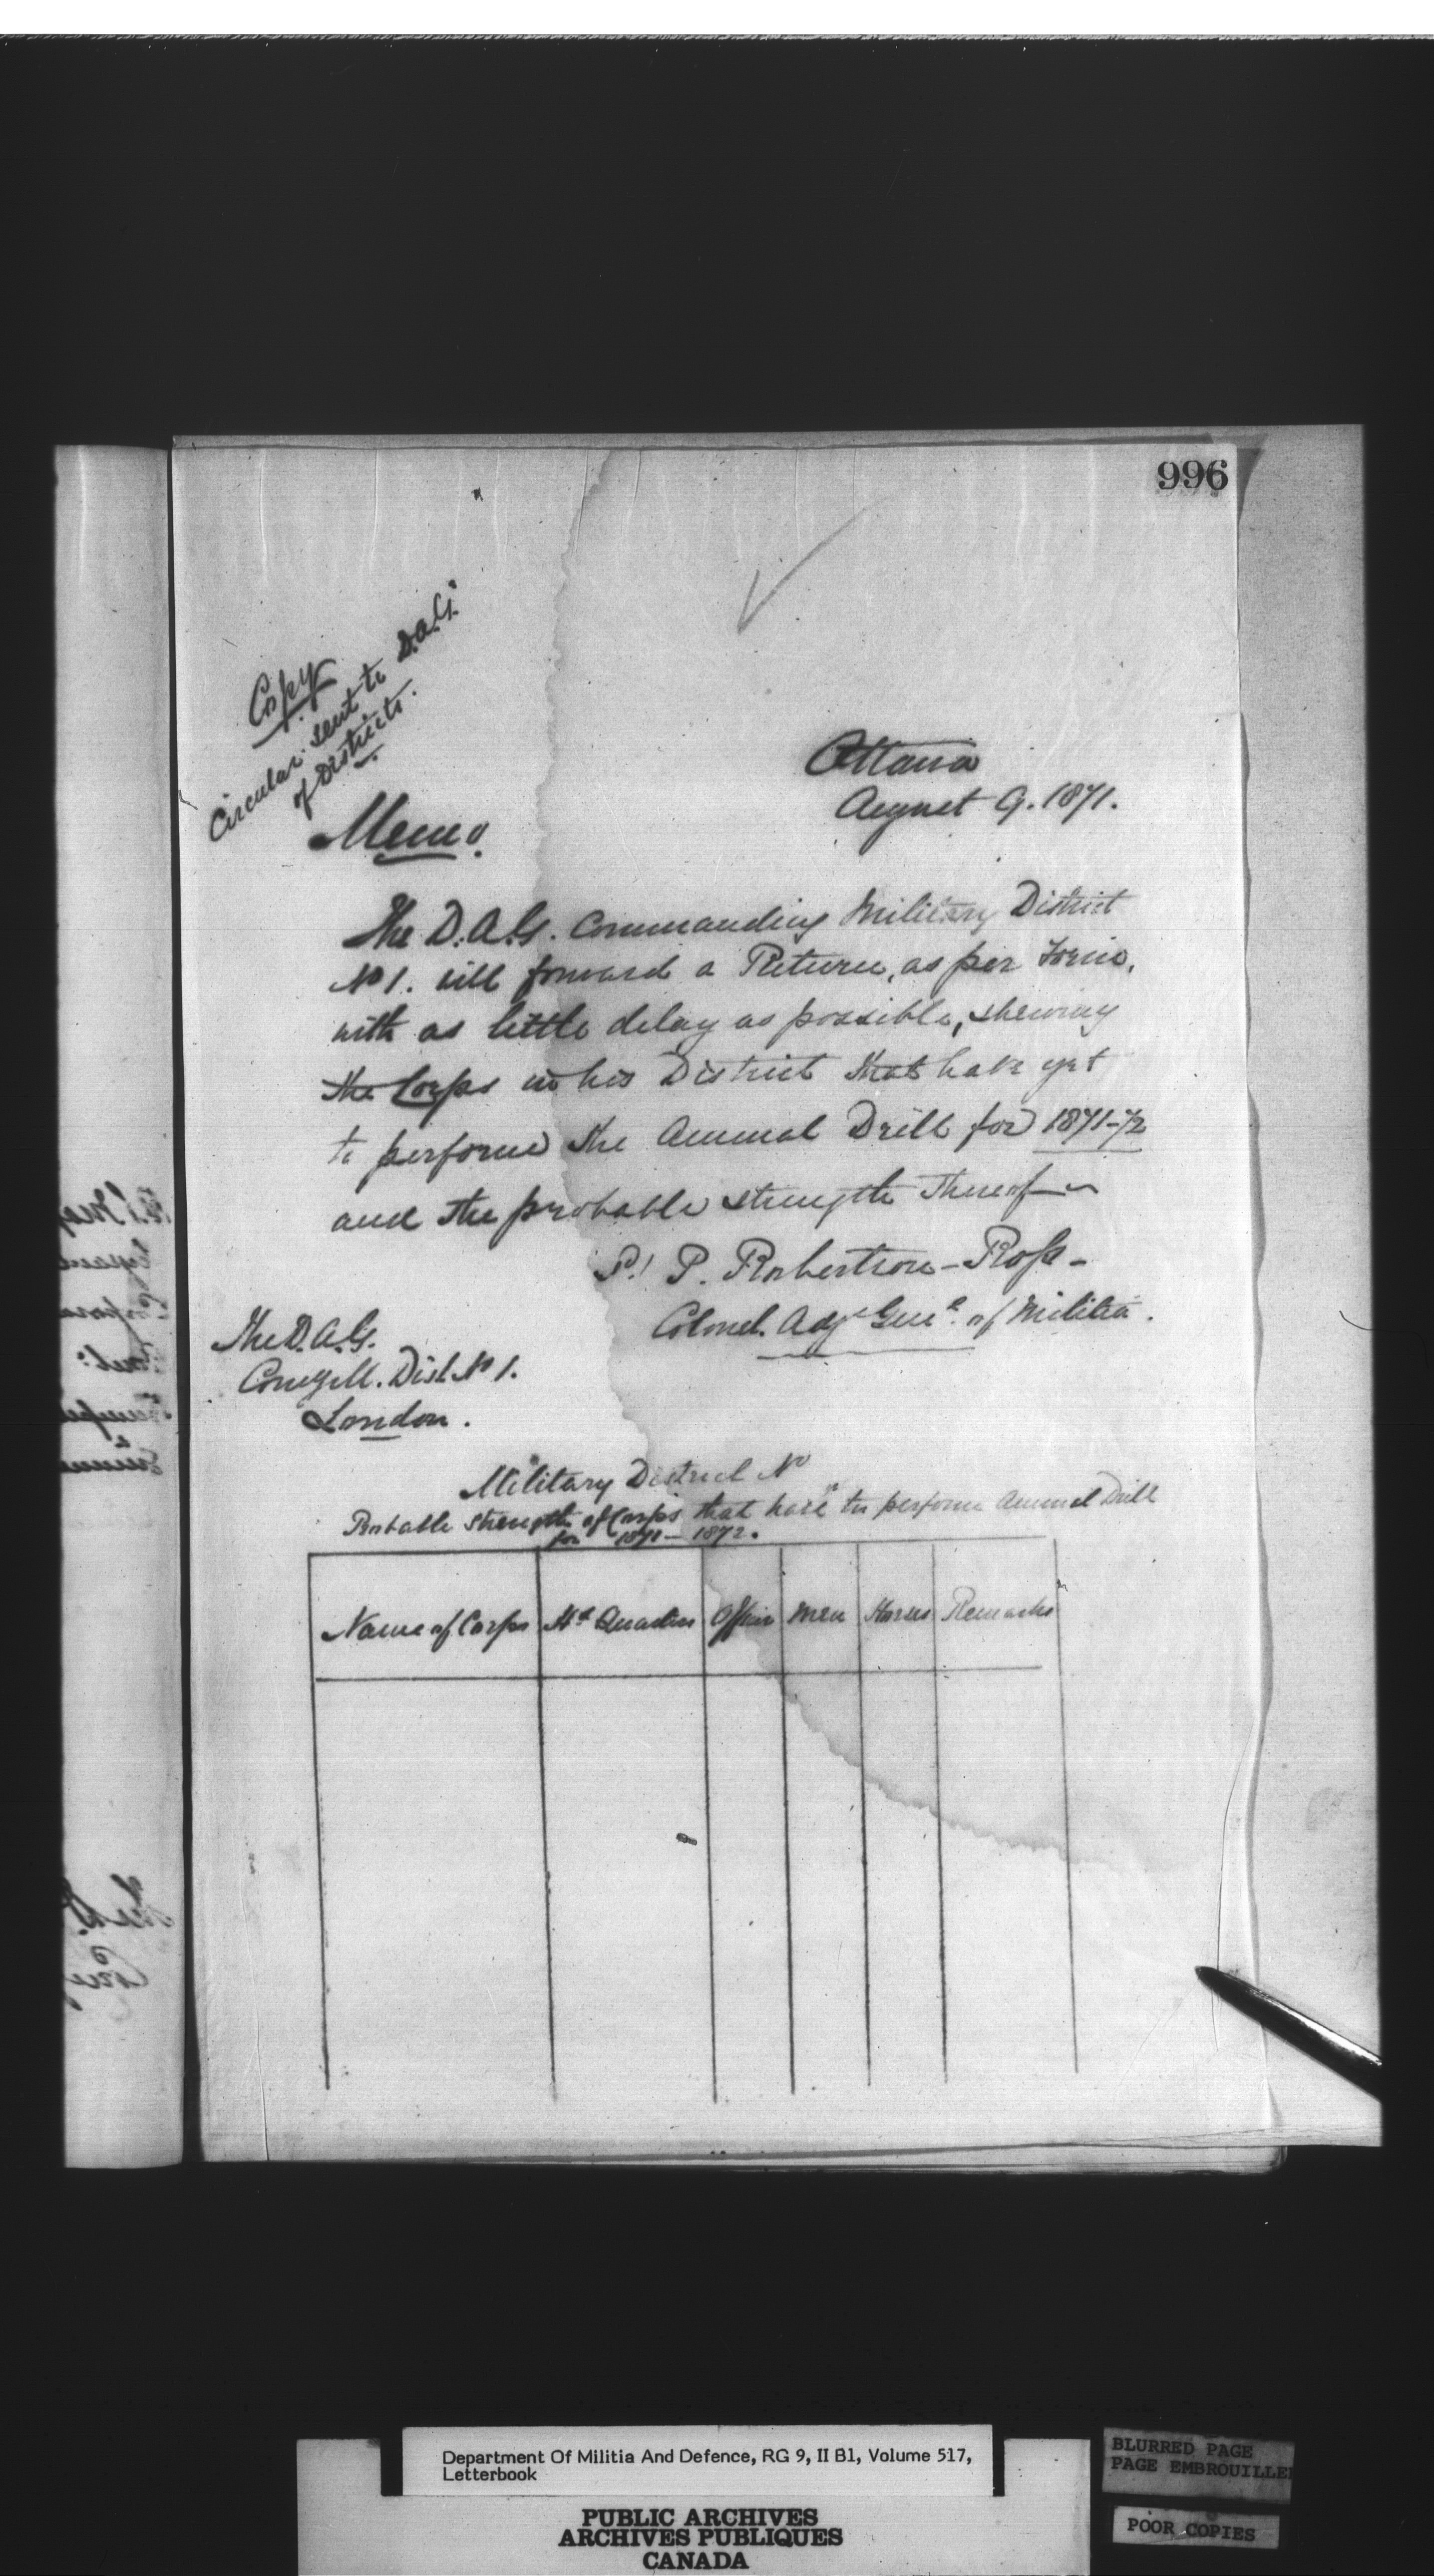 996
Copy
Circular sent to D.A.G.
of Districts.
Ottawa
August 9. 1871.
Memo.
The D.A.G. Commanding Military District
No 1. will forward a Return, as per Form,
with as little delay as possible, shewing
the Corps in his District that have yet
to perform the Annual Drill for 1871-72
and the probable strength thereof
P. Robertson-Ross
Colonel. Adjt Genl. of Militia.
The D.A.G.
Comg M. Dist. No 1.
London.
Military District No
Probable strength of Corps that have to perform Annual Drill
for 1871-1872.
Name of Corps Hd Quarters Officers Men Horses Remarks
Department Of Militia And Defence, RG 9, II B1, Volume 517,
Letterbook
PUBLIC ARCHIVES
ARCHIVES PUBLIQUES
CANADA
BLURRED PAGE
PAGE EMBROUILLEE
POOR COPIES